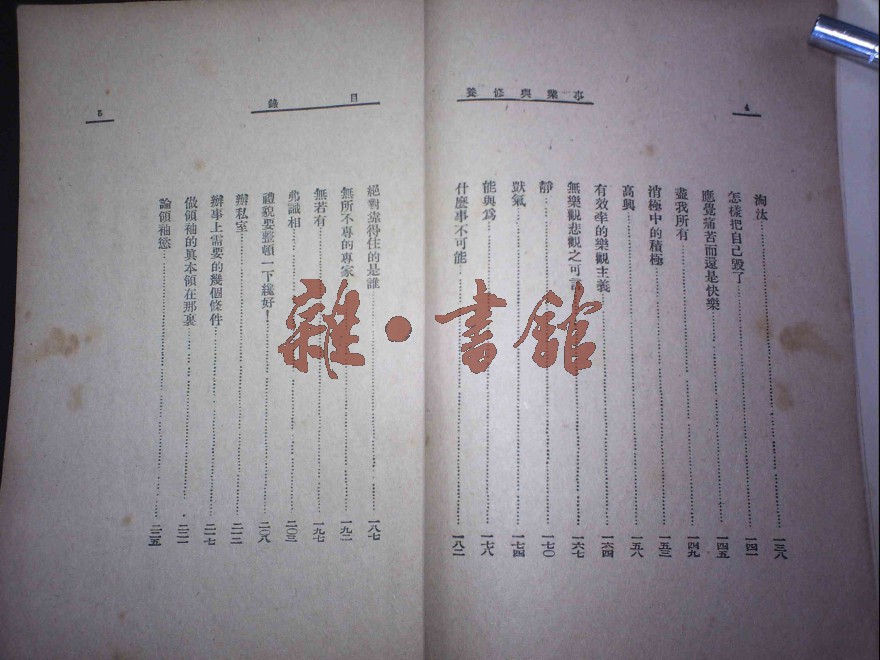 4
事業與修養
淘汰 一三八
怎樣把自己毀了 一四一
應覺痛苦而還是快樂 一四五
盡我所有 一四九
消極中的積極 一五三
高興 一五八
有效率的樂觀主義 一六四
無樂觀悲觀之可言 一六七
靜 一七〇
獃氣 一七四
能與為 一七八
什麼事不可能 一八二
目錄
5
絕對靠得住的是誰 一八七
無所不專的專家 一九二
無若有 一九七
弗識相 二〇三
禮貌要整頓一下纔好！ 二〇八
辦私室 二一三
辦事上需要的幾個條件 二一七
做領袖的真本領在那裏 二二一
論領袖慾 二二五
雜·書館